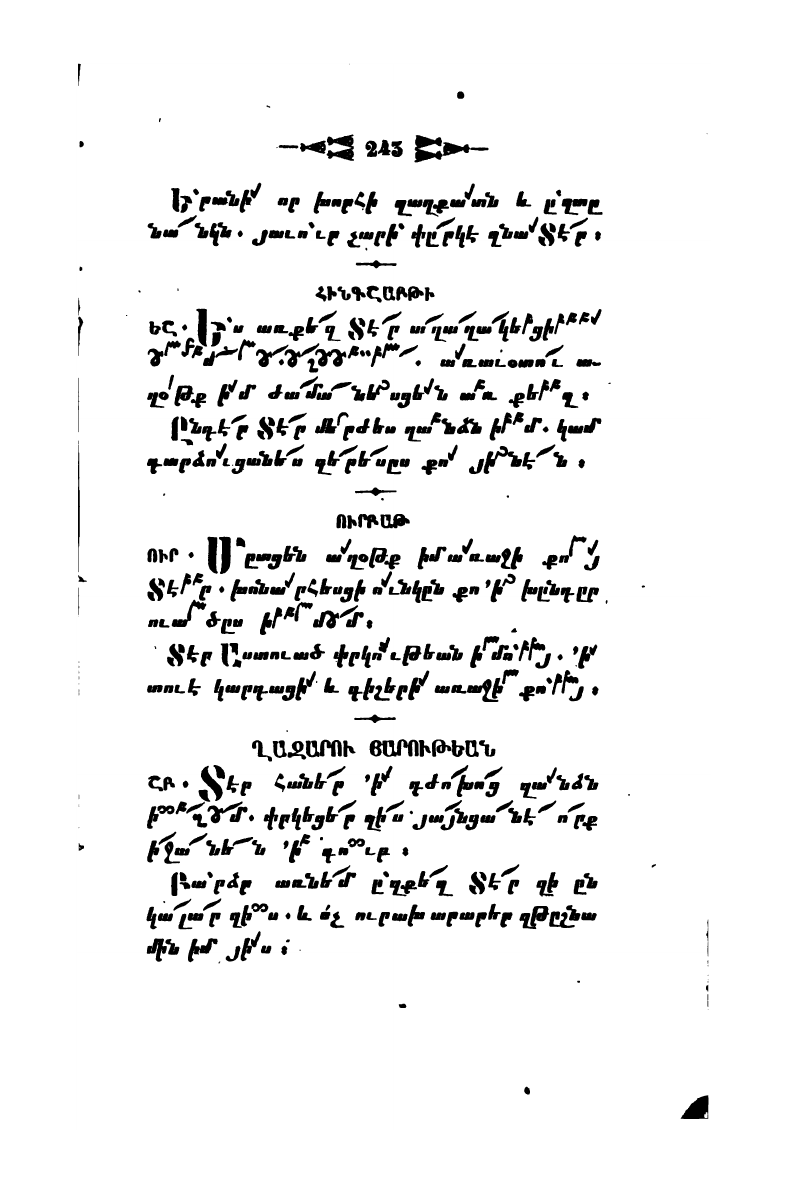 243
Երանի որ խորհի զաղքատն և ըզտը
նանկն. յաւուր չարի փըրկէ զնա Տէր ։
ՀԻՆԳՇԱԲԹԻ
ԵՇ. Ես առ քեզ Տէր աղաղակեցի
առաւօտու ա-
ղօթք իմ ժամանեսցեն առ քեզ ։
Ընդէր Տէր մերժես զանձն իմ. կամ
դարձուցանես զերեսըս քո յինէն ։
ՈՒՐԲԱԹ
ՈՒՐ. Մըտցեն աղօթք իմ առաջի քոյ
Տէր. խոնարհեսցի ունկըն քո ՚ի խընդըր
ուածըս իմում ։
Տէր Աստուած փրկութեան իմոյ. ՚ի
տուէ կարդացի և գիշերի առաջի քոյ ։
ՂԱԶԱՐՈՒ ՅԱՐՈՒԹԵԱՆ
ՇԲ. Տէր հաներ ՚ի դժոխոց զանձն
իմ. փրկեցեր զիս յայնցանէ որք
իջանեն ՚ի գուբ ։
Բարձր առնեմ ըզքեզ Տէր զի ըն
կալար զիս. և ոչ ուրախ արարեր զթըշնա
մին իմ յիս ։